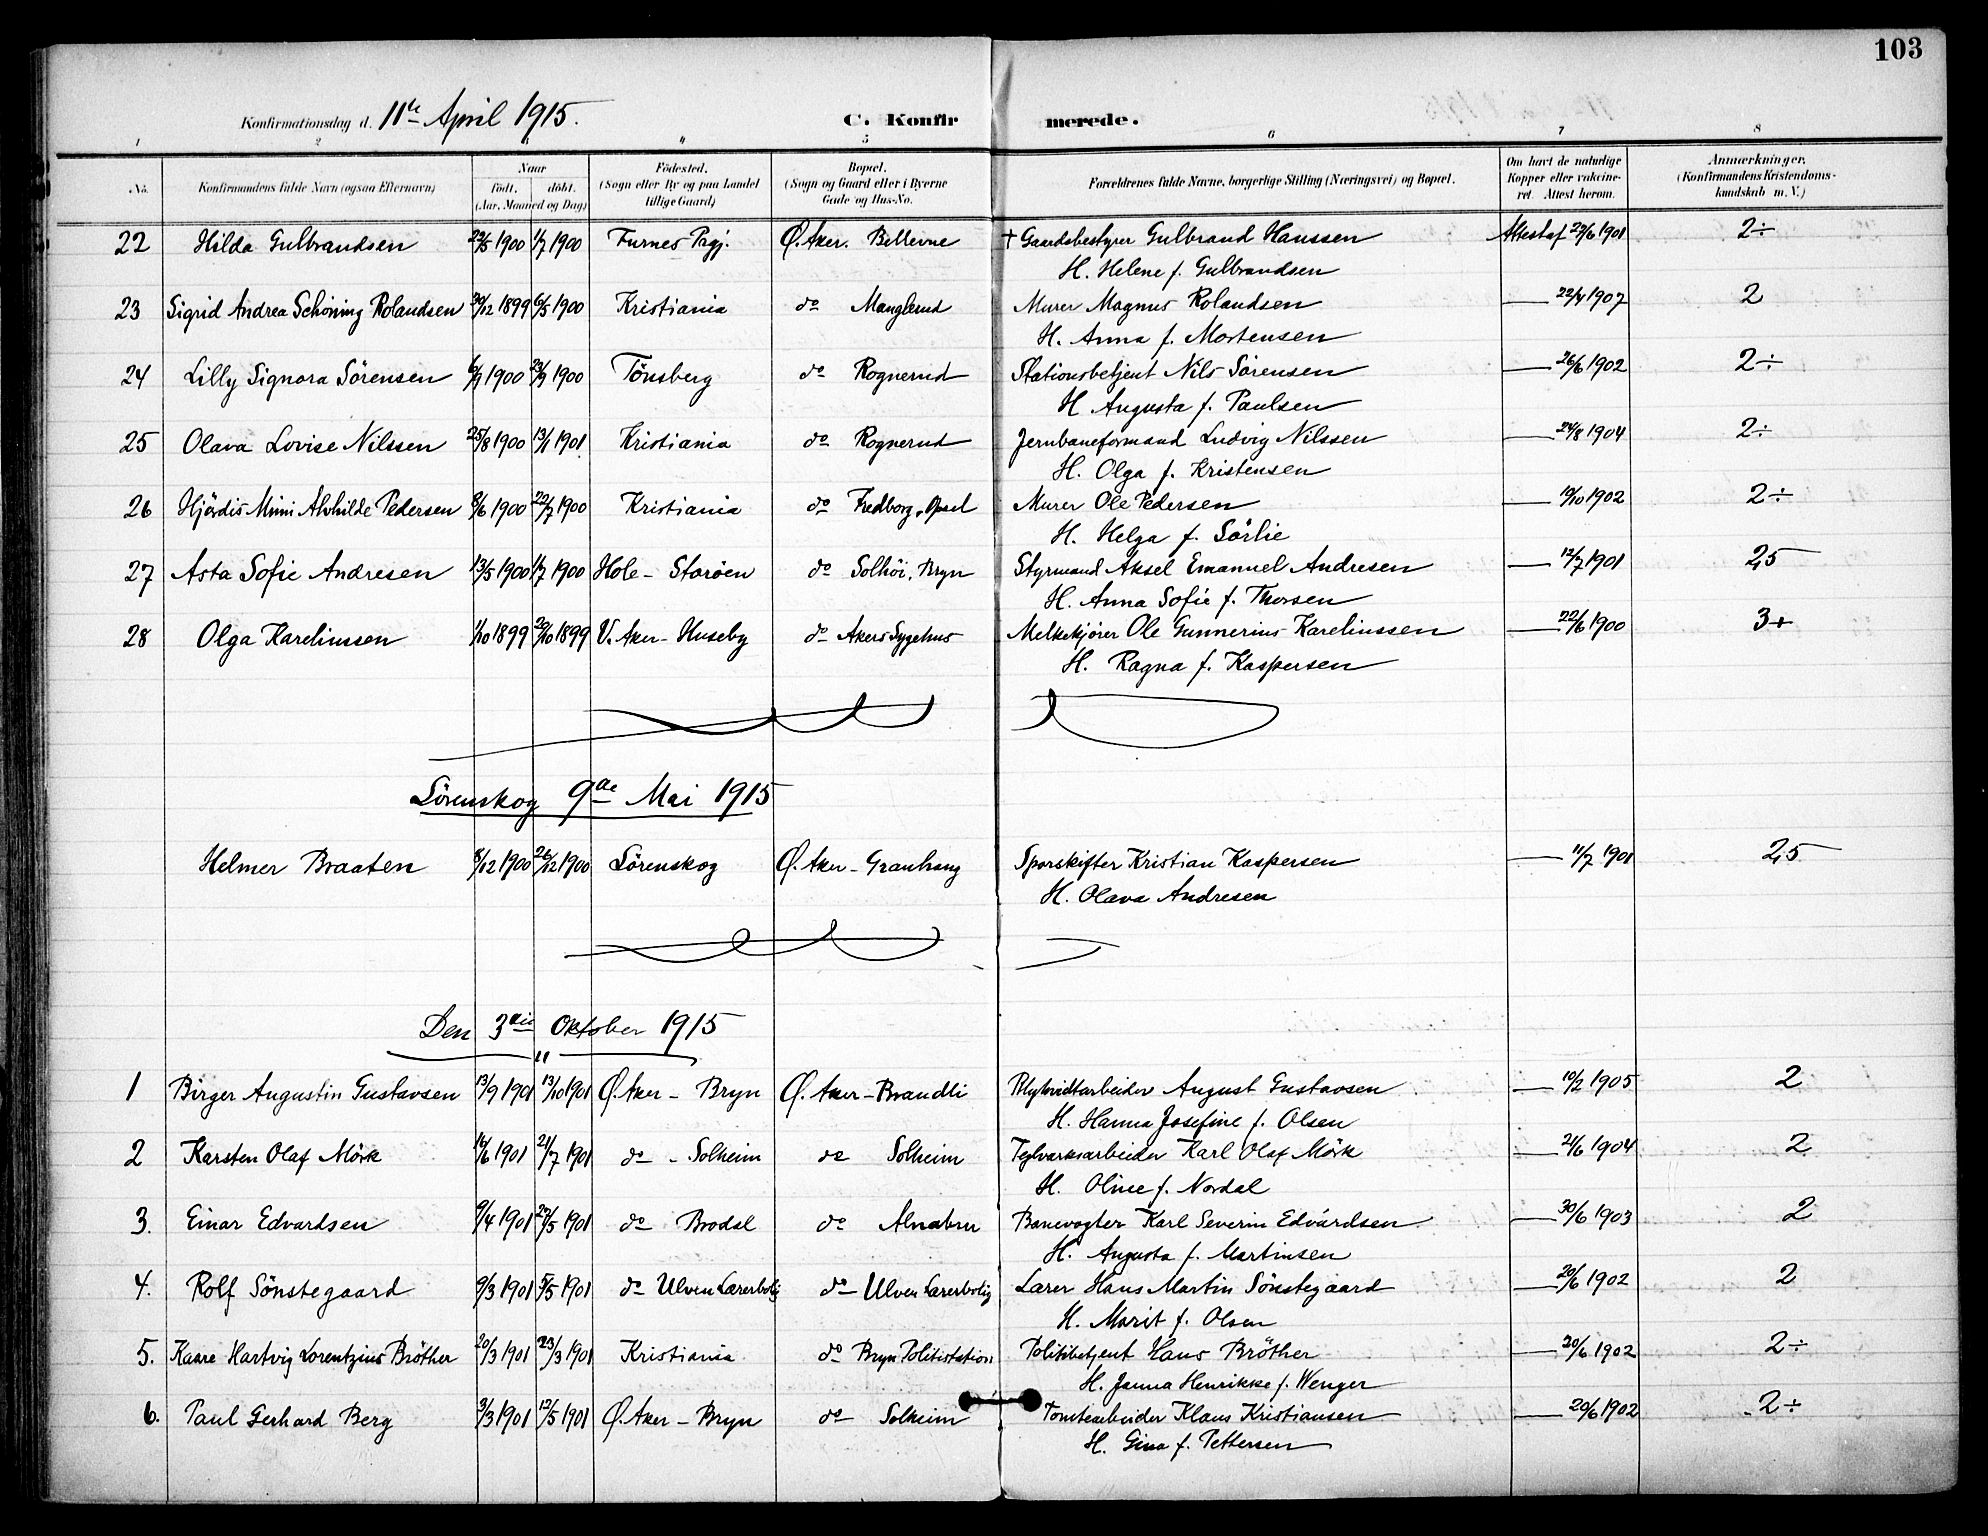 103
Konfirmationsdag d. 11te April 1915.
C. Konfirmerede.
1 2 3 4 5 6 7 8
No.
Konfirmandens fulde Navn (ogsaa Efternavn)
Naar
födt. döbt.
(Aar, Maaned og Dag)
Födested.
(Sogn eller By og paa Landet
tillige Gaard)
Bopæl.
(Sogn og Gaard eller i Byerne
Gade og Hus-No.
Forældrenes fulde Navne, borgerlige Stilling (Næringsvei) og Bopæl.
Om havt de naturlige
Kopper eller vakcine-
ret. Attest herom.
Anmærkninger.
(Konfirmandens Kristendoms-
kundskab m. V.)
22 Hilda Gulbrandsen 22/5 1900 1/7 1900 Furnes Pgj. Ø. Aker. Bellevue + Gaardsbestyrer Gulbrand Hanssen Attest af 27/6 1901 2÷
H. Helene f. Gulbrandsen
23 Sigrid Andrea Schöning Rolandsen 30/12 1899 6/5 1900 Kristiania do Manglerud Murer Magnus Rolandsen — 22/4 1907 2
H. Anna f. Mortensen
24 Lilly Signora Sörensen 6/9 1900 23/9 1900 Tönsberg do Rognerud Stationsbetjent Nils Sörensen — 26/6 1902 2÷
H. Augusta f. Paulsen
25 Olava Lovise Nilssen 25/8 1900 13/1 1901 Kristiania do Rognerud Jernbaneformand Ludvig Nilssen — 24/8 1904 2÷
H. Olga f. Kristensen
26 Hjördis Mimi Alvhilde Pedersen 8/6 1900 22/7 1900 Kristiania do Fredborg, Opsal Murer Ole Pedersen — 19/10 1902 2÷
H. Helga f. Sörlie
27 Asta Sofie Andresen 13/5 1900 1/7 1900 Hole - Storöen do Solhöi, Bryn Styrmand Aksel Emanuel Andresen — 12/7 1901 2,5
H. Anna Sofie f. Thorsen
28 Olga Karelinssen 1/10 1899 29/10 1899 V. Aker - Huseby do Akers Sygehus Melkekjører Ole Gunnerius Karelinssen — 22/6 1900 3+
H. Ragna f. Kaspersen
Lörenskog 9de Mai 1915
Helmer Braaten 8/12 1900 26/12 1900 Lörenskog Ø. Aker - Granhaug Sporskifter Kristian Kaspersen — 11/7 1901 2,5
H. Olava Andresen
Den 3die Oktober 1915
1 Birger Augustin Gustavsen 13/9 1901 13/10 1901 Ø. Aker - Bryn Ø. Aker - Brandli Blyhvidtarbeider August Gustavsen — 10/2 1905 2
H. Hanna Josefine f. Olsen
2 Karsten Olaf Mörk 16/6 1901 21/7 1901 do - Solheim do Solheim Teglverksarbeider Karl Olaf Mörk — 21/6 1904 2
H. Oline f. Nordal
3. Einar Edvardsen 9/4 1901 27/5 1901 do Brodal do Alnabru Banevogter Karl Severin Edvardsen — 30/6 1903 2
H. Augusta f. Martinsen
4. Rolf Sönstegaard 9/3 1901 5/5 1901 do Ulven Lærerbolig do Ulven Lærerbolig Lærer Hans Martin Sönstegaard — 20/6 1902 2
H. Marit f. Olsen
5. Kaare Hartvig Lorentzius Bröther 20/3 1901 23/3 1901 Kristiania do Bryn Politistation Politibetjent Hans Bröther — 20/6 1902 2÷
H. Janna Henrikke f. Wenger
6. Paul Gerhard Berg 3/3 1901 12/5 1901 Ø. Aker - Bryn do Solheim Tomtearbeider Klaus Kristiansen — 20/6 1902 2÷
H. Gina f. Pettersen